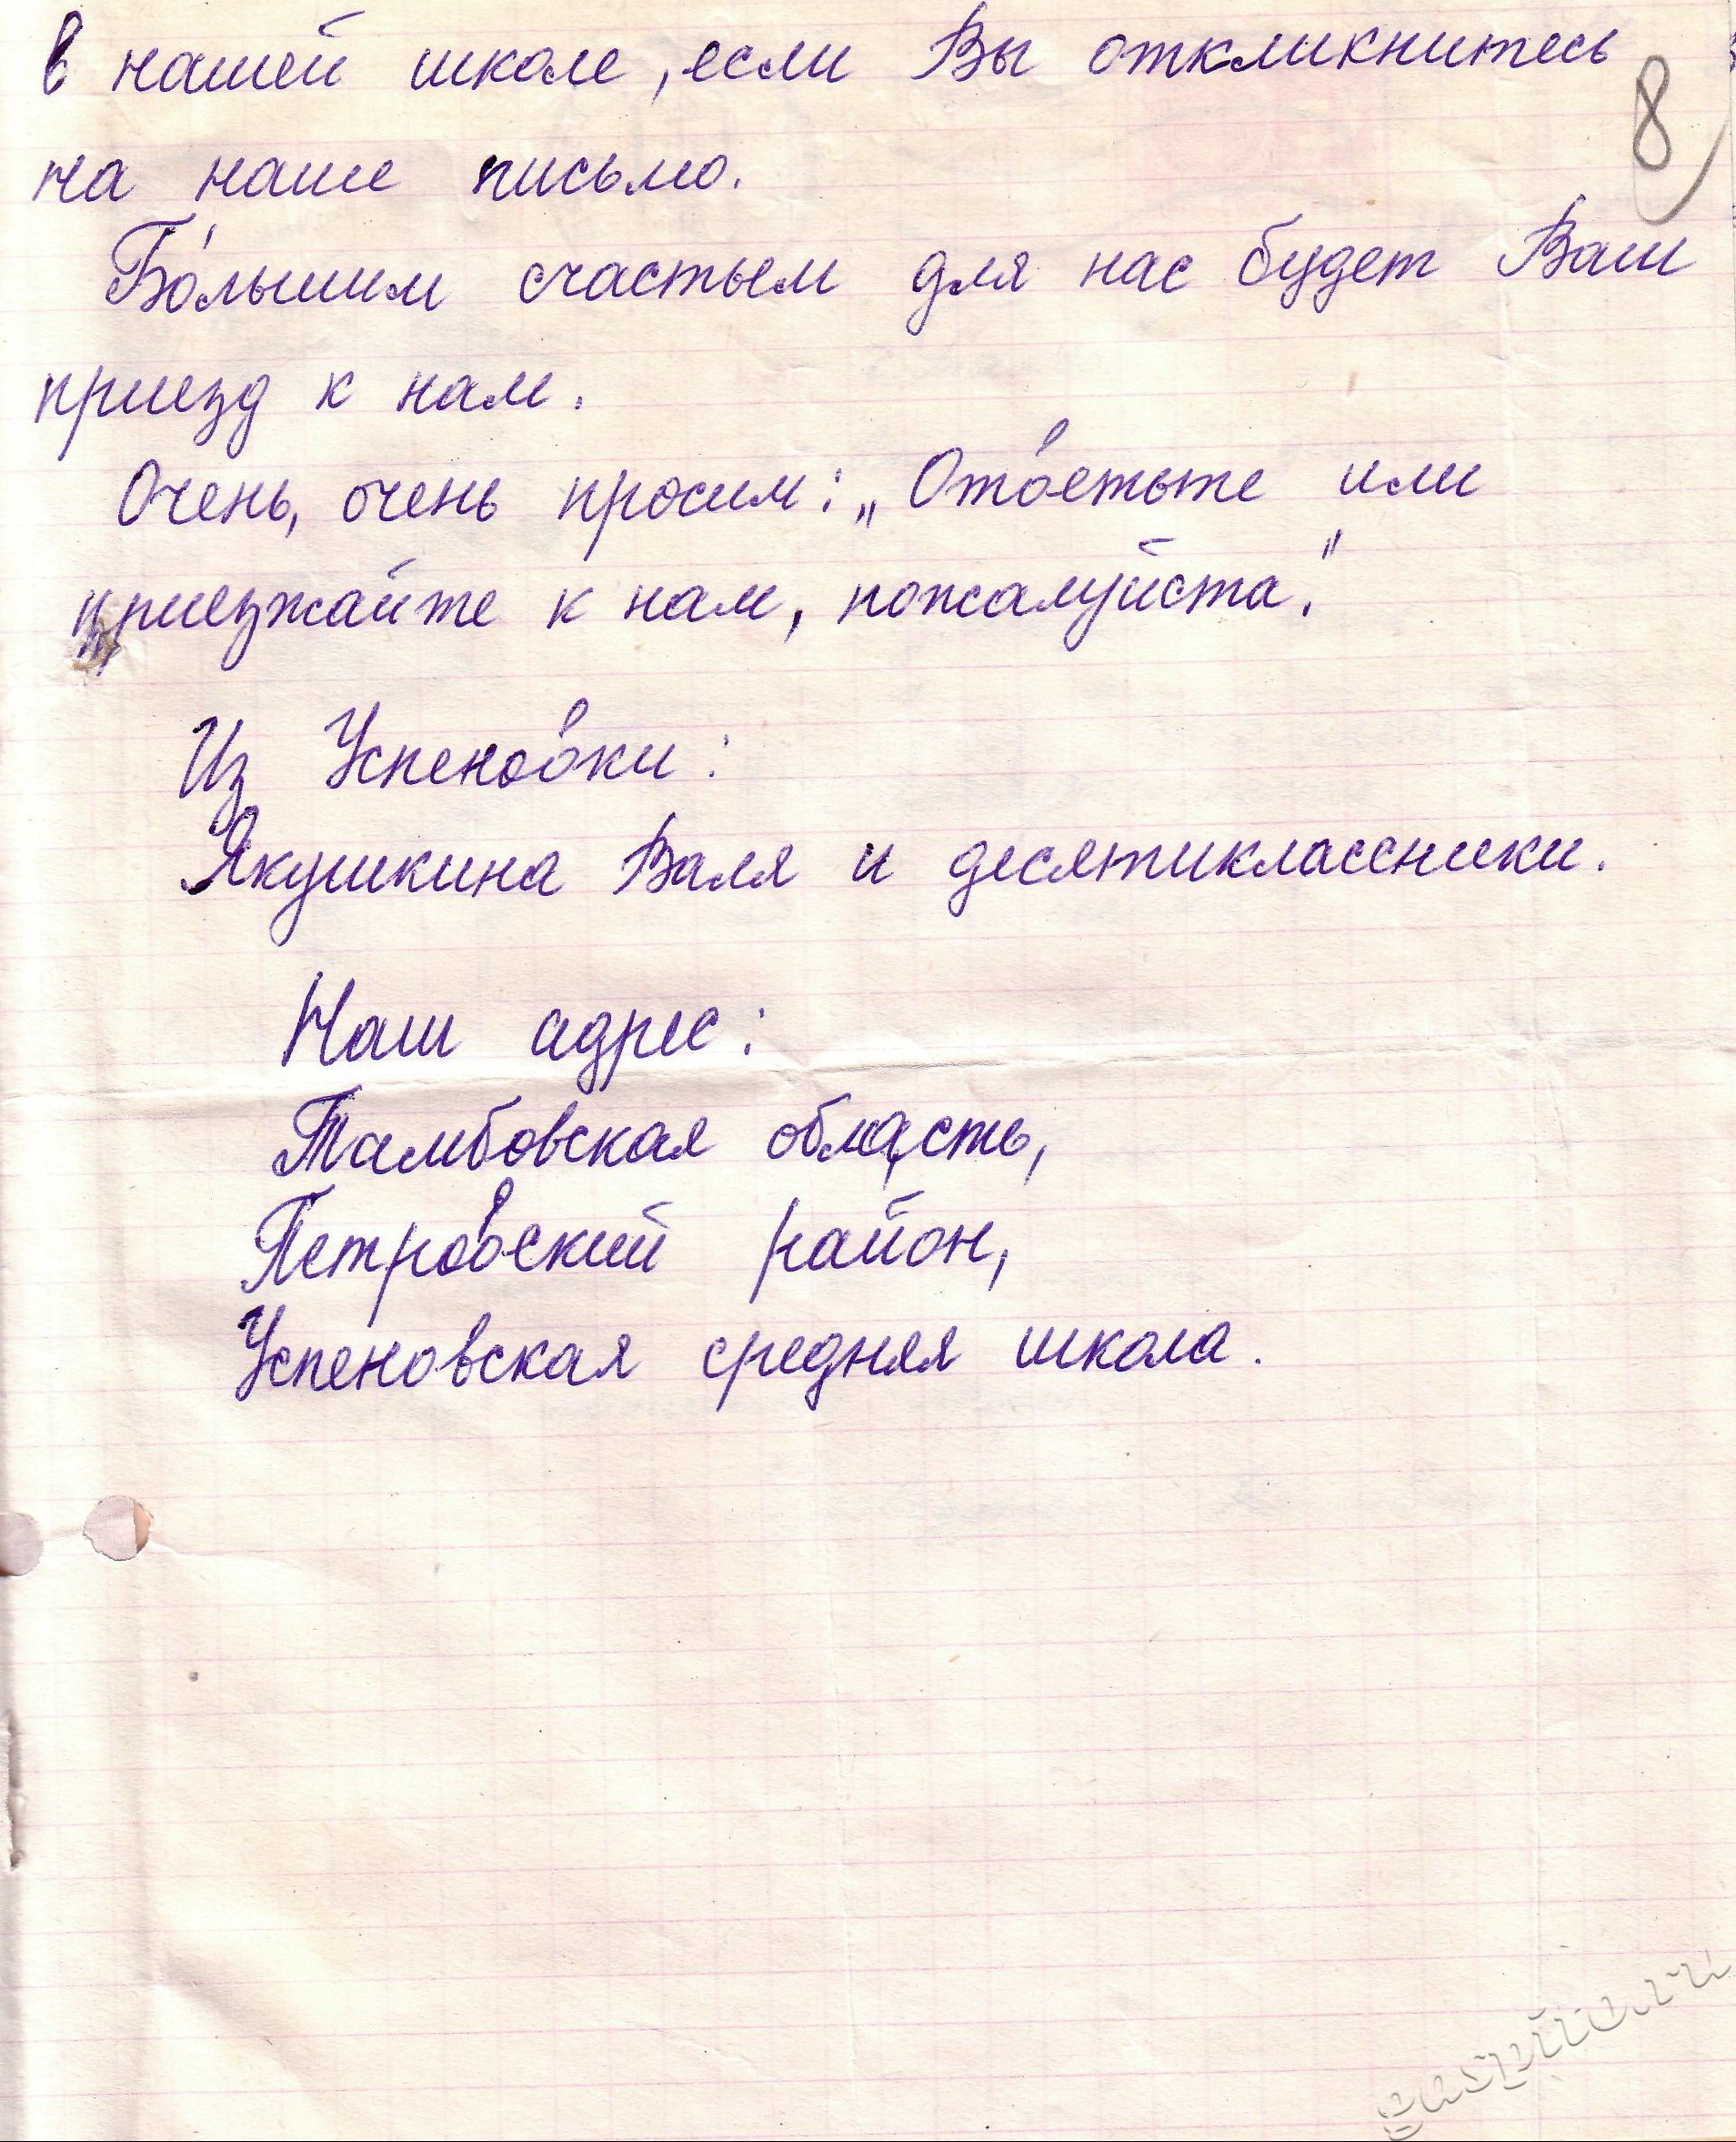 в нашей школе, если Вы откликнитесь
8
на наше письмо.
Бо́льшим счастьем для нас будет Ваш
приезд к нам.
Очень, очень просим: „Ответьте или
приезжайте к нам, пожалуйста."
Из Успеновки:
Якушкина Валя и десятиклассники.
Наш адрес:
Тамбовская область,
Петровский район,
Успеновская средняя школа.
gaspito.ru